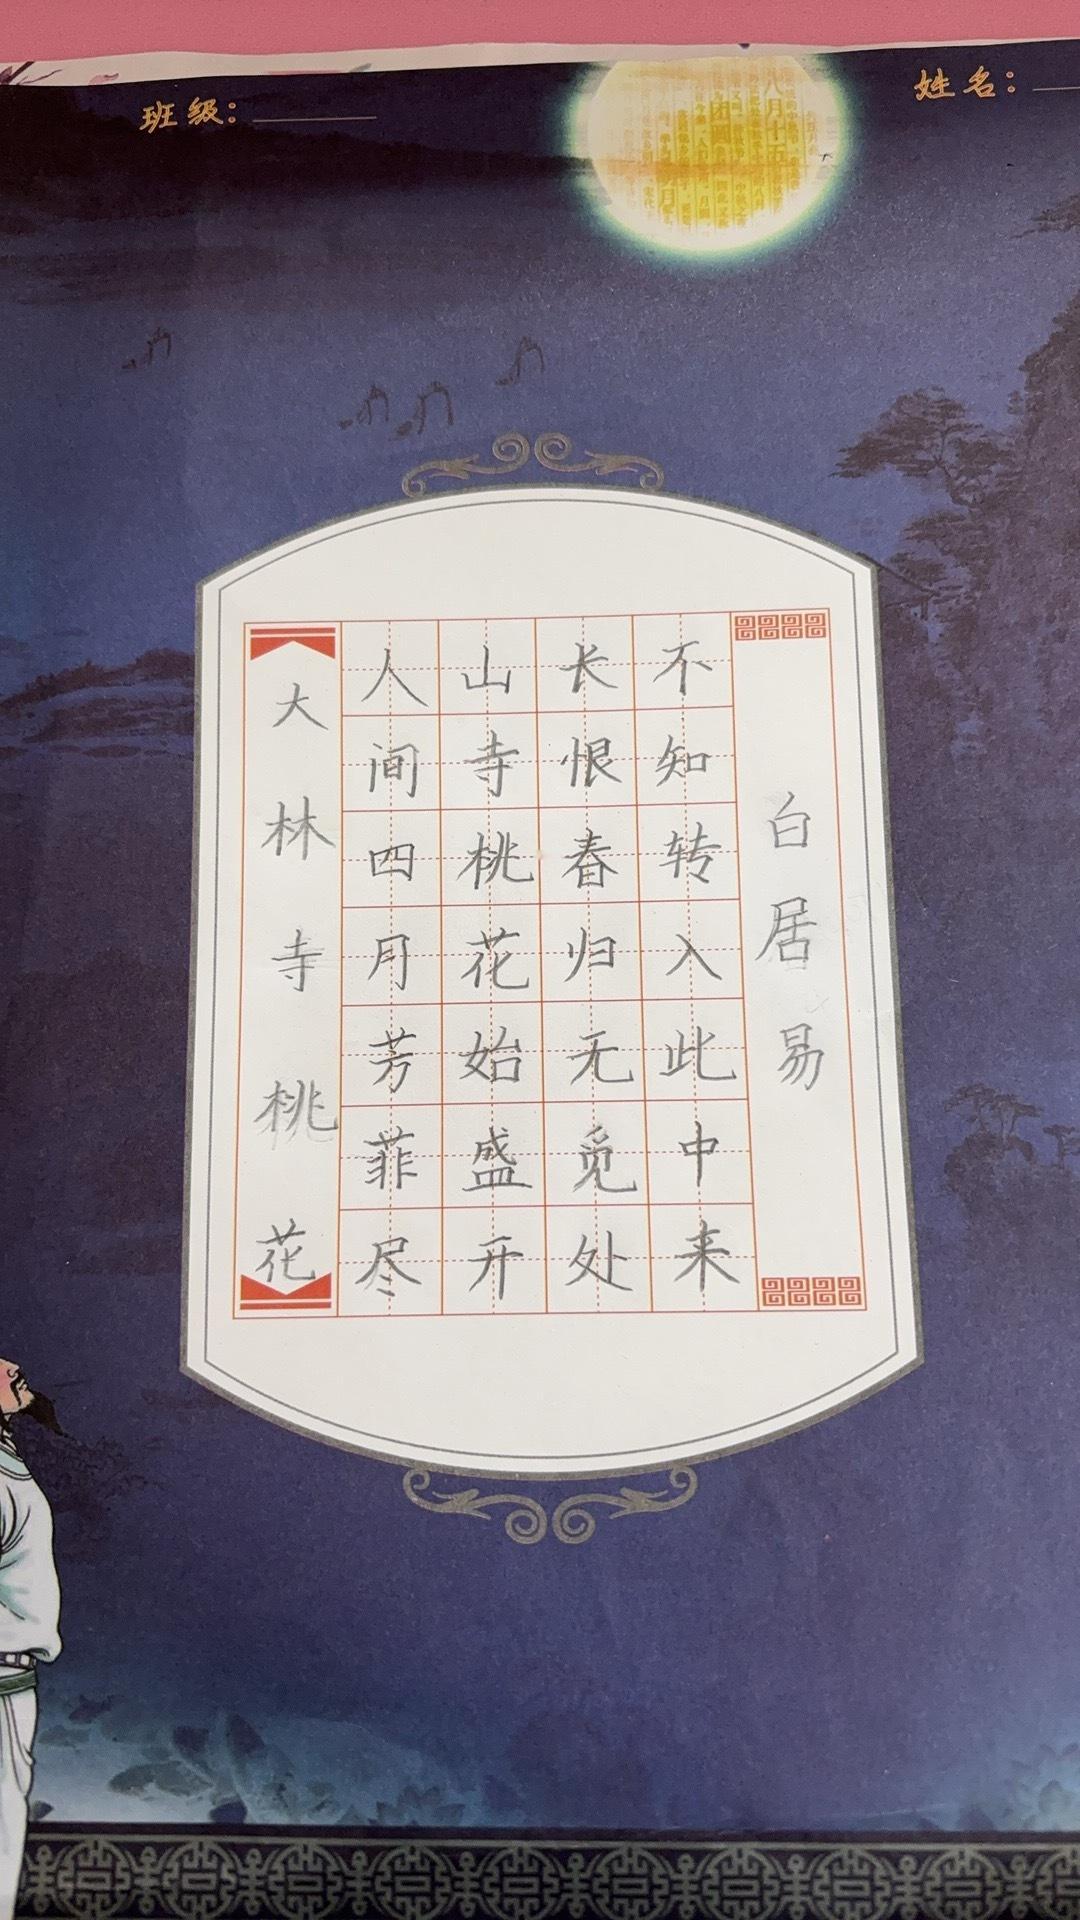 班级：
姓名：
八月十五
团圆
月
大林寺桃花
人间四月芳菲尽
山寺桃花始盛开
长恨春归无觅处
不知转入此中来
白居易